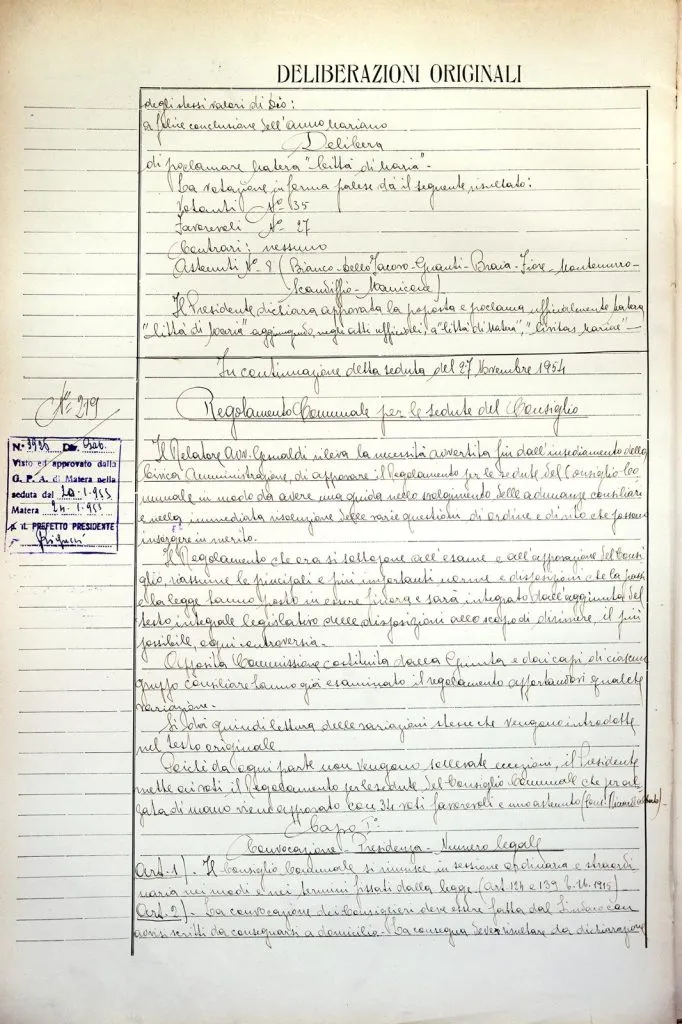 DELIBERAZIONI ORIGINALI
degli stessi valori di Dio:
a felice conclusione dell'anno mariano
Delibera
di proclamare Matera "Città di Maria".
La votazione in forma palese dà il seguente risultato:
Votanti N° 35
Favorevoli N° 27
Contrari: nessuno
Astenuti N° 8 (Bianco - Dello Iacovo - Guanti - Braia - Fiore - Montemurro -
Scandiffio - Manicone)
Il Presidente dichiara approvata la proposta e proclama ufficialmente Matera
"Città di Maria" aggiungendo, negli atti ufficiali, a "Città di Matera", "Civitas Mariae" -
In continuazione della seduta del 27 Novembre 1954
N° 219
Regolamento Comunale per le sedute del Consiglio
N. 3935 Div. Gab.
Visto ed approvato dalla
G. P. A. di Matera nella
seduta del 20-1-955
Matera 24-1-955
IL PREFETTO PRESIDENTE
Il Relatore Avv. Grimaldi rileva la necessità avvertita fin dall'insediamento della
Civica Amministrazione di approvare il Regolamento per le sedute del Consiglio Co-
munale in modo da avere una guida nello svolgimento delle adunanze consiliari
e nella immediata risoluzione delle varie questioni di ordine e di rito che possono
insorgere in merito.
Il Regolamento che ora si sottopone all'esame e all'approvazione del Consi-
glio, riassume le principali e più importanti norme e disposizioni che la prassi
e la legge hanno posto in essere finora e sarà integrato dall'aggiunta del
testo integrale legislativo delle disposizioni allo scopo di dirimere, il più
possibile, ogni controversia.
Apposita Commissione costituita dalla Giunta e dai capi di ciascun
gruppo consiliare hanno già esaminato il regolamento apportandovi qualche
variazione.
Si dà quindi lettura delle variazioni stesse che vengono introdotte
nel testo originale.
Poichè da ogni parte non vengono sollevate eccezioni, il Presidente
mette ai voti il Regolamento per le sedute del Consiglio Comunale che per al-
zata di mano viene approvato con 34 voti favorevoli e uno astenuto (Cons.
Capo I°
Convocazione - Presidenza - Numero legale
Art. 1) - Il Consiglio Comunale si riunisce in sessione ordinaria e straordi-
naria nei modi e nei termini fissati dalla legge. (Art. 124 e 139 T.U. 1915)
Art. 2) - La convocazione dei Consiglieri deve essere fatta dal Sindaco con
avvisi scritti da consegnarsi a domicilio - La consegna deve risultare da dichiarazione